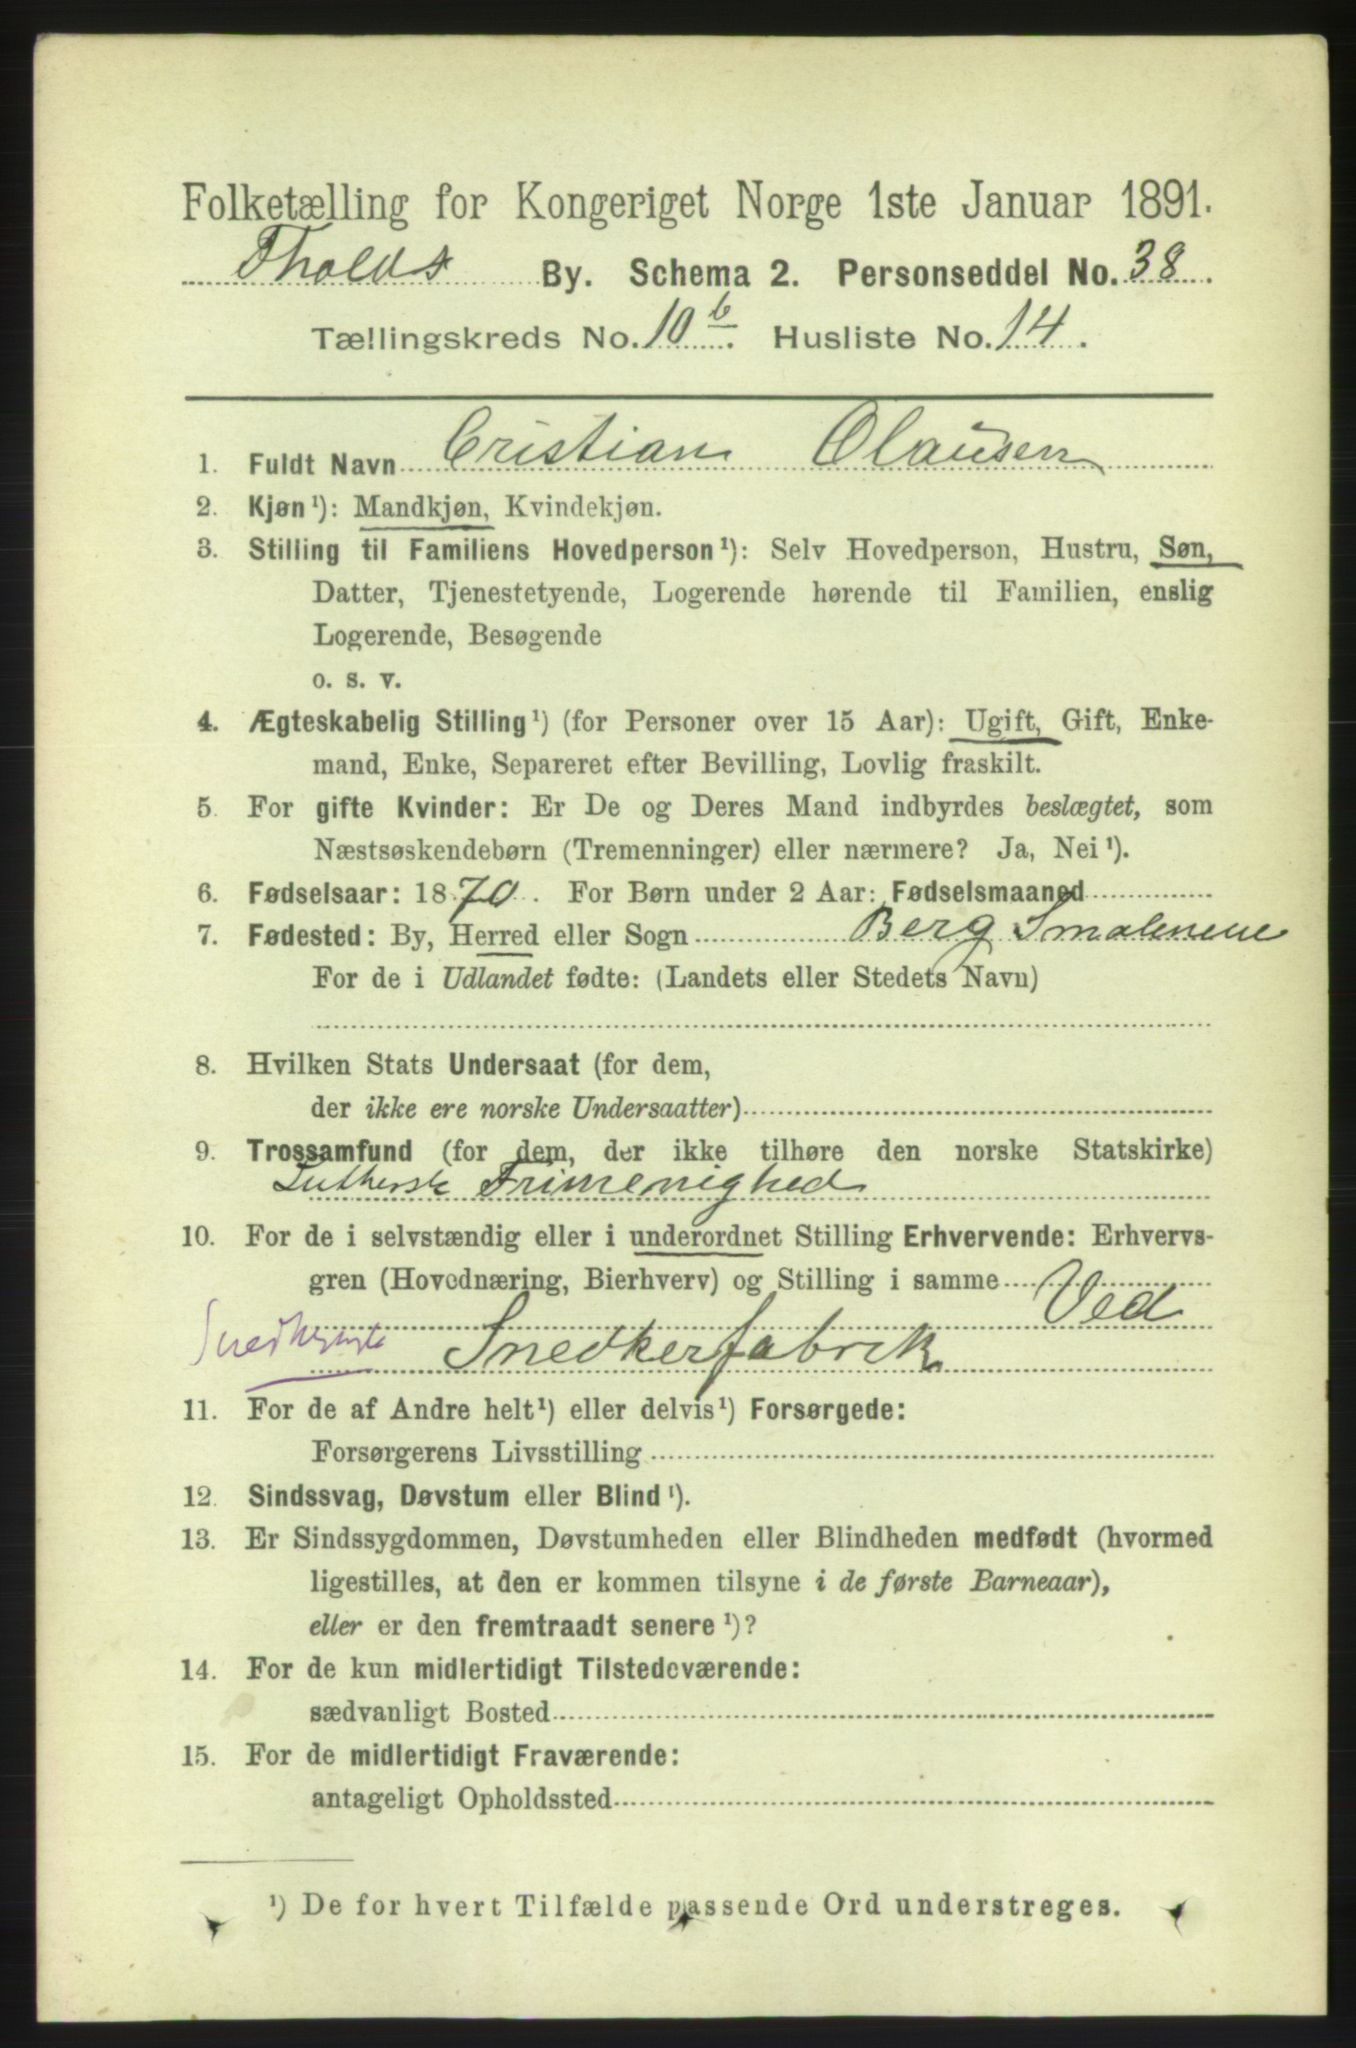 Folketælling for Kongeriget Norge 1ste Januar 1891.
Fholds By. Schema 2. Personseddel No. 38.
Tællingskreds No. 10 b. Husliste No. 14.
1. Fuldt Navn Cristian Olausen
2. Kjøn¹): Mandkjøn, Kvindekjøn.
3. Stilling til Familiens Hovedperson¹): Selv Hovedperson, Hustru, Søn,
Datter, Tjenestetyende, Logerende hørende til Familien, enslig
Logerende, Besøgende
o. s. v.
4. Ægteskabelig Stilling¹) (for Personer over 15 Aar): Ugift, Gift, Enke-
mand, Enke, Separeret efter Bevilling, Lovlig fraskilt.
5. For gifte Kvinder: Er De og Deres Mand indbyrdes beslægtet, som
Næstsøskendebørn (Tremenninger) eller nærmere? Ja, Nei¹).
6. Fødselsaar: 1870. For Børn under 2 Aar: Fødselsmaaned
7. Fødested: By, Herred eller Sogn Berg Smalenene
For de i Udlandet fødte: (Landets eller Stedets Navn)
8. Hvilken Stats Undersaat (for dem,
der ikke ere norske Undersaatter)
9. Trossamfund (for dem, der ikke tilhøre den norske Statskirke)
Luthersk Frimenighed
10. For de i selvstændig eller i underordnet Stilling Erhvervende: Erhvervs-
gren (Hovednæring, Bierhverv) og Stilling i samme Ved
Snedkerfabrik
11. For de af Andre helt¹) eller delvis¹) Forsørgede:
Forsørgerens Livsstilling
12. Sindssvag, Døvstum eller Blind¹).
13. Er Sindssygdommen, Døvstumheden eller Blindheden medfødt (hvormed
ligestilles, at den er kommen tilsyne i de første Barneaar),
eller er den fremtraadt senere¹)?
14. For de kun midlertidigt Tilstedeværende:
sædvanligt Bosted
15. For de midlertidigt Fraværende:
antageligt Opholdssted
¹) De for hvert Tilfælde passende Ord understreges.